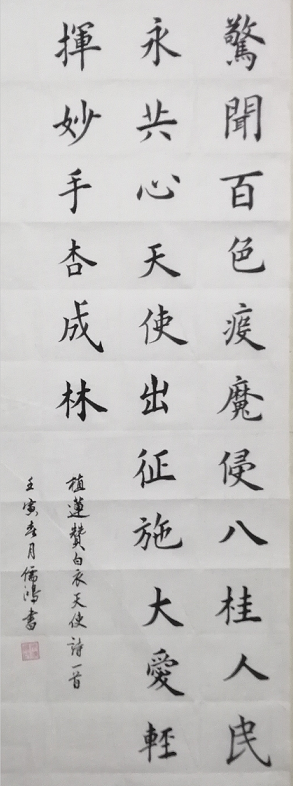 驚聞百色疫魔侵八桂人民
永共心天使出征施大愛輕
揮妙手杏成林
植蓮贊白衣天使詩一首
壬寅春月儒鴻書